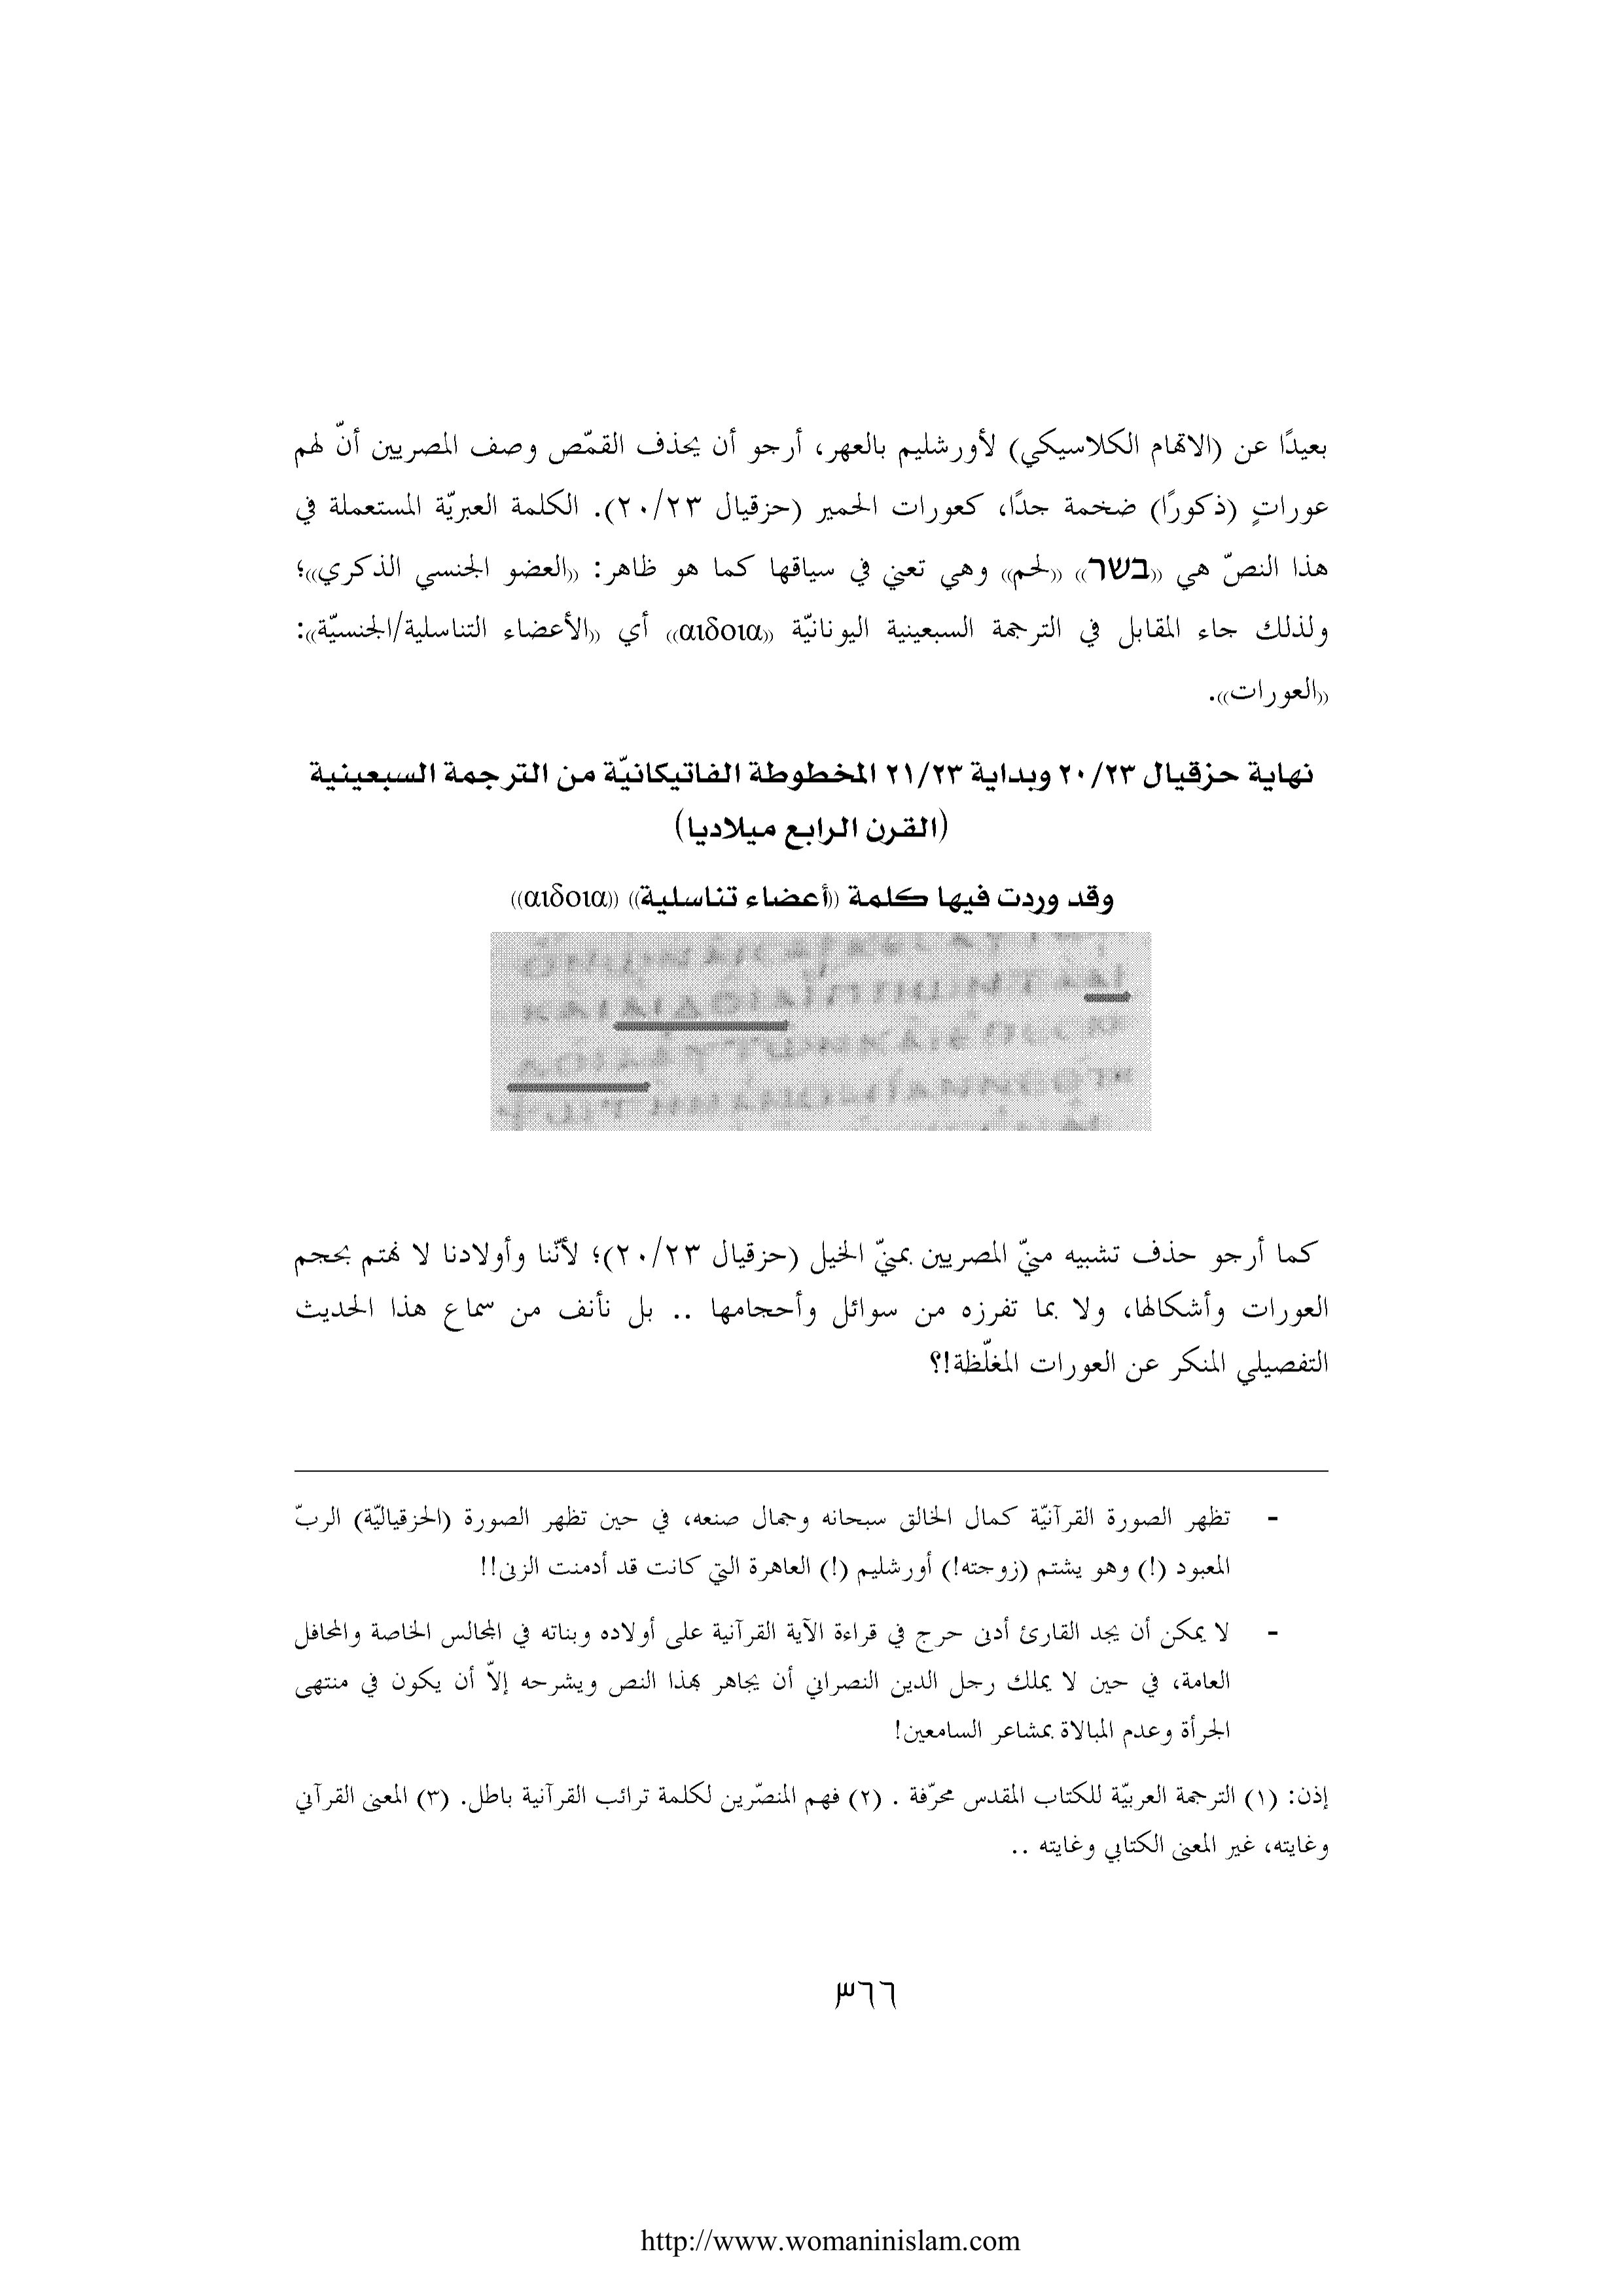 بعيدًا عن (الاتهام الكلاسيكي) لأورشليم بالعهر، أرجو أن يحذف القمّص وصف المصريين أنّ لهم
عوراتٍ (ذكورًا) ضخمة جدًا، كعورات الحمير (حزقيال ٢٠/٢٣). الكلمة العبريّة المستعملة في
هذا النصّ هي ((בשר)) ((لحم)) وهي تعني في سياقها كما هو ظاهر: ((العضو الجنسي الذكري))؛
ولذلك جاء المقابل في الترجمة السبعينية اليونانيّة ((αιδοια)) أي ((الأعضاء التناسلية/الجنسيّة)):
((العورات)).
نهاية حزقيال ٢٠/٢٣ وبداية ٢١/٢٣ المخطوطة الفاتيكانيّة من الترجمة السبعينية
(القرن الرابع ميلاديا)
وقد وردت فيها كلمة ((أعضاء تناسلية)) ((αιδοια))
كما أرجو حذف تشبيه منيّ المصريين بمنيّ الخيل (حزقيال ٢٠/٢٣)؛ لأنّنا وأولادنا لا نهتم بحجم
العورات وأشكالها، ولا بما تفرزه من سوائل وأحجامها .. بل نأنف من سماع هذا الحديث
التفصيلي المنكر عن العورات المغلّظة!؟
- تظهر الصورة القرآنيّة كمال الخالق سبحانه وجمال صنعه، في حين تظهر الصورة (الحزقياليّة) الربّ
المعبود (!) وهو يشتم (زوجته!) أورشليم (!) العاهرة التي كانت قد أدمنت الزنى!!
- لا يمكن أن يجد القارئ أدنى حرج في قراءة الآية القرآنية على أولاده وبناته في المجالس الخاصة والمحافل
العامة، في حين لا يملك رجل الدين النصراني أن يجاهر بهذا النص ويشرحه إلاّ أن يكون في منتهى
الجرأة وعدم المبالاة بمشاعر السامعين!
إذن: (١) الترجمة العربيّة للكتاب المقدس محرّفة . (٢) فهم المنصّرين لكلمة ترائب القرآنية باطل. (٣) المعنى القرآني
وغايته، غير المعنى الكتابي وغايته ..
٣٦٦
http://www.womaninislam.com